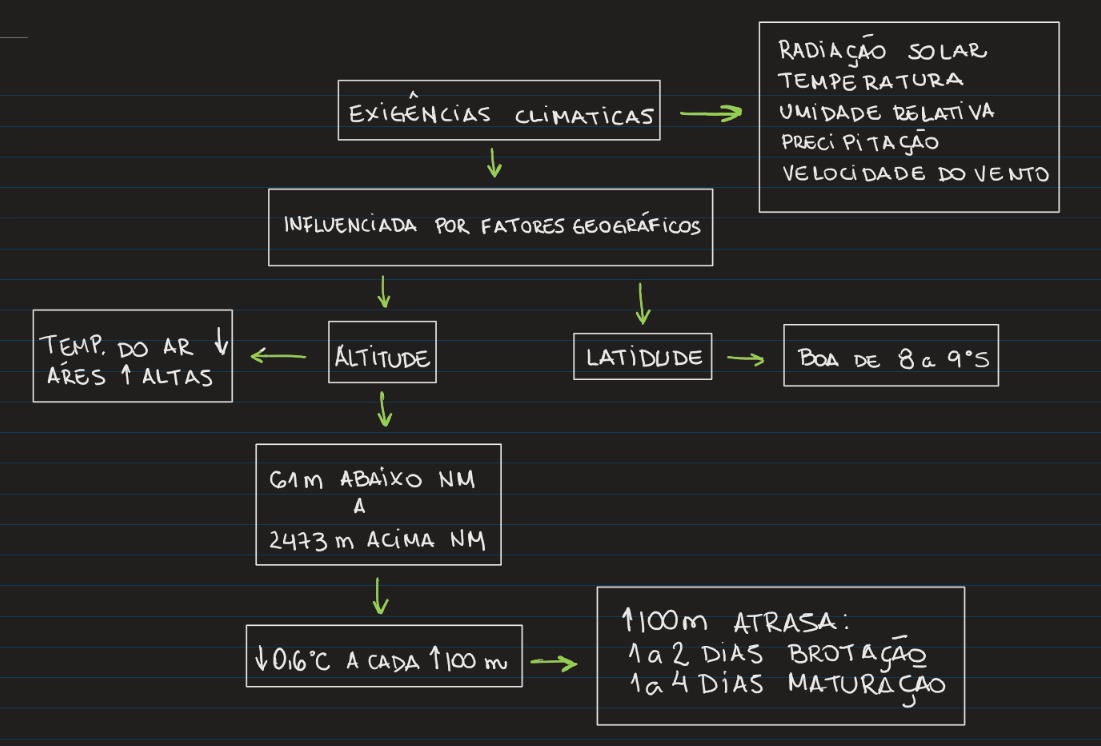 RADIAÇÃO SOLAR
TEMPERATURA
UMIDADE RELATIVA
PRECIPITAÇÃO
VELOCIDADE DO VENTO
EXIGÊNCIAS CLIMATICAS
INFLUENCIADA POR FATORES GEOGRÁFICOS
TEMP. DO AR ↓
ÁRES ↑ ALTAS
ALTITUDE
LATIDUDE
BOA DE 8 a 9°S
61m ABAIXO NM
A
2473m ACIMA NM
↓0,6°C A CADA ↑100 m
↑100m ATRASA:
1 a 2 DIAS BROTAÇÃO
1 a 4 DIAS MATURAÇÃO